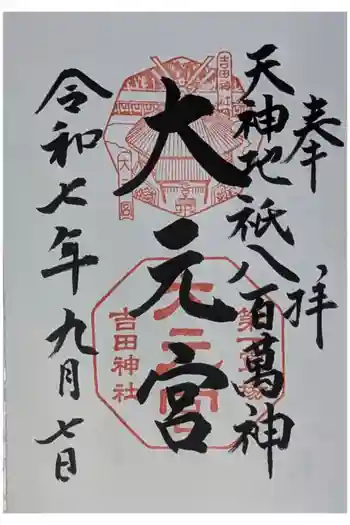 奉拝
天神地祇八百萬神
大元宮
令和七年九月七日
吉田神社
大元宮
吉田神社